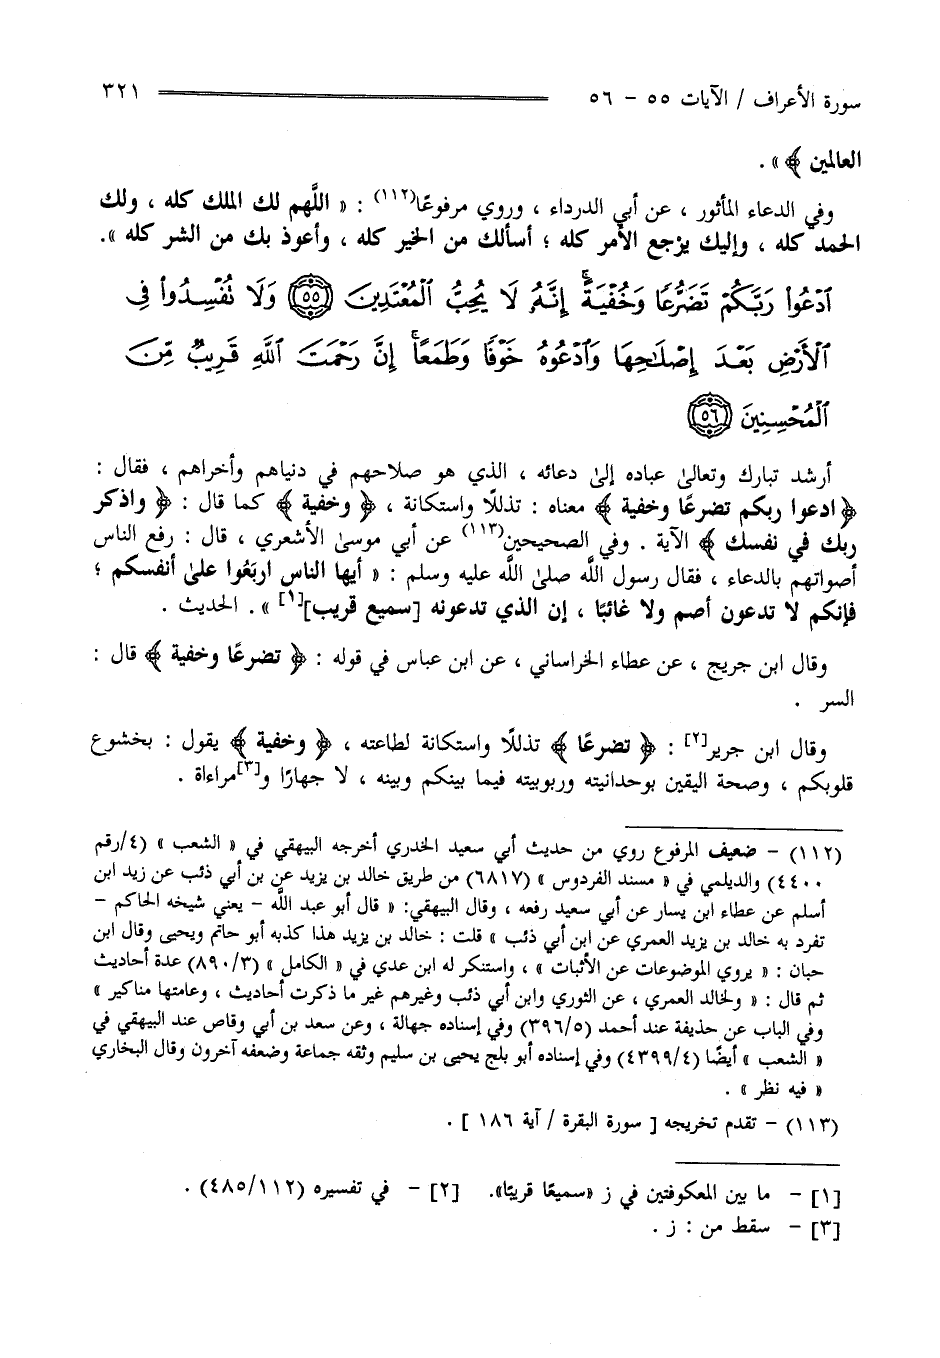 سورة الأعراف / الآيات ٥٥ - ٥٦ ٣٢١
العالمين ﴾ » .
وفي الدعاء المأثور ، عن أبي الدرداء ، وروي مرفوعًا(١١٢) : « اللَّهم لك الملك كله ، ولك
الحمد كله ، وإليك يرجع الأمر كله ؛ أسألك من الخير كله ، وأعوذ بك من الشر كله ».
ٱدْعُوا۟ رَبَّكُمْ تَضَرُّعًا وَخُفْيَةً ۚ إِنَّهُۥ لَا يُحِبُّ ٱلْمُعْتَدِينَ ۝٥٥ وَلَا تُفْسِدُوا۟ فِى
ٱلْأَرْضِ بَعْدَ إِصْلَـٰحِهَا وَٱدْعُوهُ خَوْفًا وَطَمَعًا ۚ إِنَّ رَحْمَتَ ٱللَّهِ قَرِيبٌ مِّنَ
ٱلْمُحْسِنِينَ ۝٥٦
أرشد تبارك وتعالىٰ عباده إلىٰ دعائه ، الذي هو صلاحهم في دنياهم وأخراهم ، فقال :
﴿ ادعوا ربكم تضرعًا وخفية ﴾ معناه : تذللًا واستكانة ، ﴿ وخفية ﴾ كما قال : ﴿ واذكر
ربك في نفسك ﴾ الآية . وفي الصحيحين(١١٣) عن أبي موسىٰ الأشعري ، قال : رفع الناس
أصواتهم بالدعاء ، فقال رسول اللَّه صلىٰ اللَّه عليه وسلم : « أيها الناس اربَعُوا علىٰ أنفسكم ؛
فإنكم لا تدعون أصم ولا غائبًا ، إن الذي تدعونه [سميع قريب][١] ». الحديث .
وقال ابن جريج ، عن عطاء الخراساني ، عن ابن عباس في قوله : ﴿ تضرعًا وخفية ﴾ قال :
السر .
وقال ابن جرير[٢] : ﴿ تضرعًا ﴾ تذللًا واستكانة لطاعته ، ﴿ وخفية ﴾ يقول : بخشوع
قلوبكم ، وصحة اليقين بوحدانيته وربوبيته فيما بينكم وبينه ، لا جهارًا و[٣]مراءاة .
(١١٢) - ضعيف المرفوع روي من حديث أبي سعيد الخدري أخرجه البيهقي في « الشعب » (٤/رقم
٤٤٠٠) والديلمي في « مسند الفردوس » (٦٨١٧) من طريق خالد بن يزيد عن بن أبي ذئب عن زيد ابن
أسلم عن عطاء ابن يسار عن أبي سعيد رفعه ، وقال البيهقي: « قال أبو عبد اللَّه - يعني شيخه الحاكم -
تفرد به خالد بن يزيد العمري عن ابن أبي ذئب » قلت : خالد بن يزيد هذا كذبه أبو حاتم ويحيى وقال ابن
حبان : « يروي الموضوعات عن الأثبات » ، واستنكر له ابن عدي في « الكامل » (٨٩٠/٣) عدة أحاديث
ثم قال : « ولخالد العمري ، عن الثوري وابن أبي ذئب وغيرهم غير ما ذكرت أحاديث ، وعامتها مناكير »
وفي الباب عن حذيفة عند أحمد (٣٩٦/٥) وفي إسناده جهالة ، وعن سعد بن أبي وقاص عند البيهقي في
« الشعب » أيضًا (٤٣٩٩/٤) وفي إسناده أبو بلج يحيى بن سليم وثقه جماعة وضعفه آخرون وقال البخاري
« فيه نظر » .
(١١٣) - تقدم تخريجه [ سورة البقرة / آية ١٨٦ ] .
[١] - ما بين المعكوفتين في ز «سميعًا قريبًا». [٢] - في تفسيره (٤٨٥/١١٢) .
[٣] - سقط من : ز .